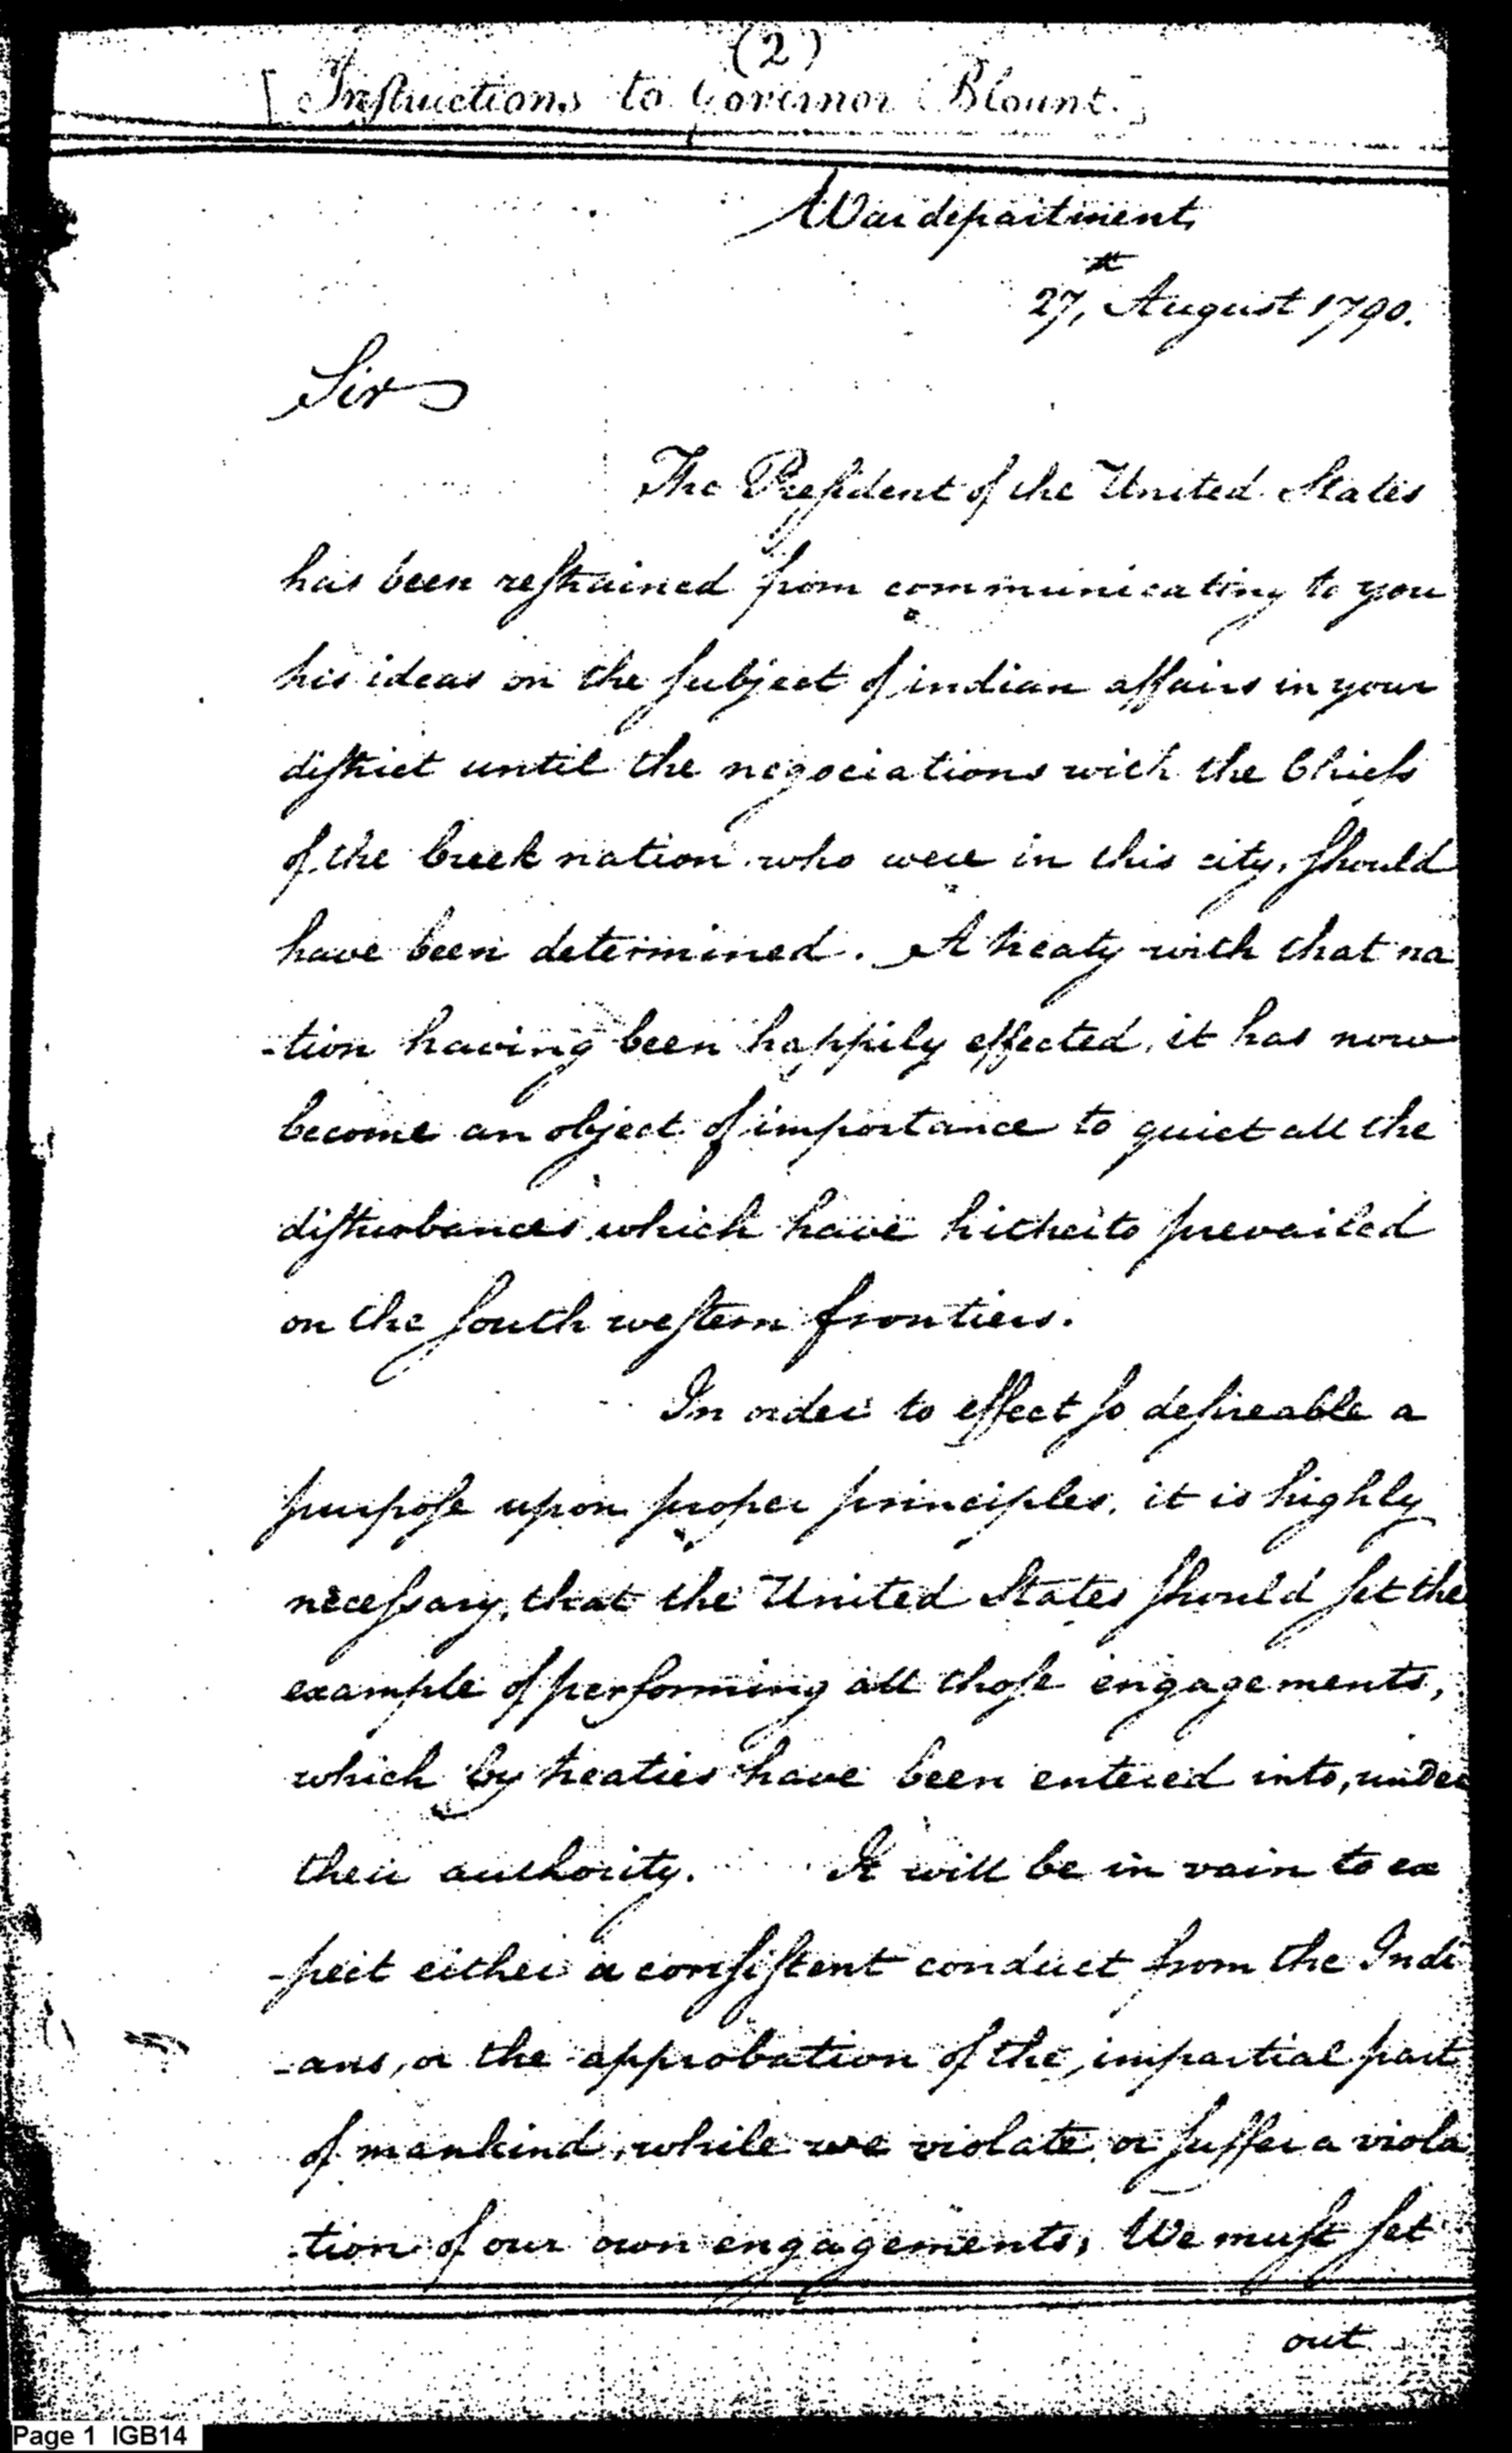 (2)
[Instructions to Governor Blount.]
War department,
27,th August 1790.
Sir
The President of the United States
has been restrained from communicating to you
his ideas on the subject of indian affairs in your
district until the negociations with the Chiefs
of the Creek nation who were in this city, should
have been determined. A treaty with that na
-tion having been happily effected, it has now
become an object of importance to quiet all the
disturbances which have hitherto prevailed
on the south western frontiers.
In order to effect so desireable a
purpose upon proper principles, it is highly
necessary, that the United States should set the
example of performing all those engagements,
which by treaties have been entered into, under
their authority. It will be in vain to ex
-pect either a consistent conduct from the Indi
-ans, or the approbation of the impartial part
of mankind, while we violate, or suffer a viola
-tion of our own engagements, We must set
out
Page 1 IGB14